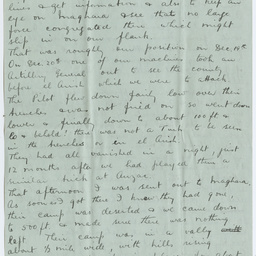 lines & get information & also to keep an
eye on maghara & see that no large
force congregated there which might
slip in on our flank.
That was roughly our position on Dec 19th
On Dec 20th one of our machines took an
Artillery General out to see the country
before el Arish which we were to attack.
The Pilot flew down fairly low over their
trenches & was not fired on so went down
lower & finally down to about 100 ft &
lo & behold! there was not a Turk to be seen
in the trenches or in el Arish.
They had all vanished in a night, just
12 months after we had played them a
similar trick at Anzac.
That afternoon I was sent out to maghara,
As soon as I got there I knew they had gone,
their camp was deserted & we came down
to 500 ft & made sure there was nothing
left. Their camp was in a valley
about ½ mile wide, with hills rising
about